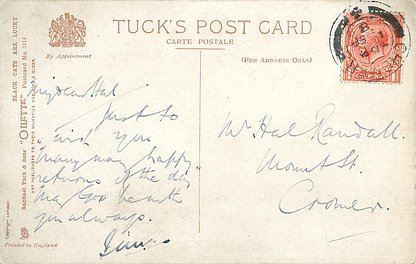 TUCK'S POST CARD
CARTE POSTALE
By Appointment
(FOR ADDRESS ONLY)
BLACK CATS ARE LUCKY
Raphael Tuck & Sons' "OILETTE" Postcard No.
ART PUBLISHERS TO THEIR MAJESTIES THE KING & QUEEN.
Copyright London
Printed in England
My dear Hal
Just to
wish you
"many many happy
returns of the day"
May God be with
you always.
Mr Hal Randall.
Mount St.
Cromer.